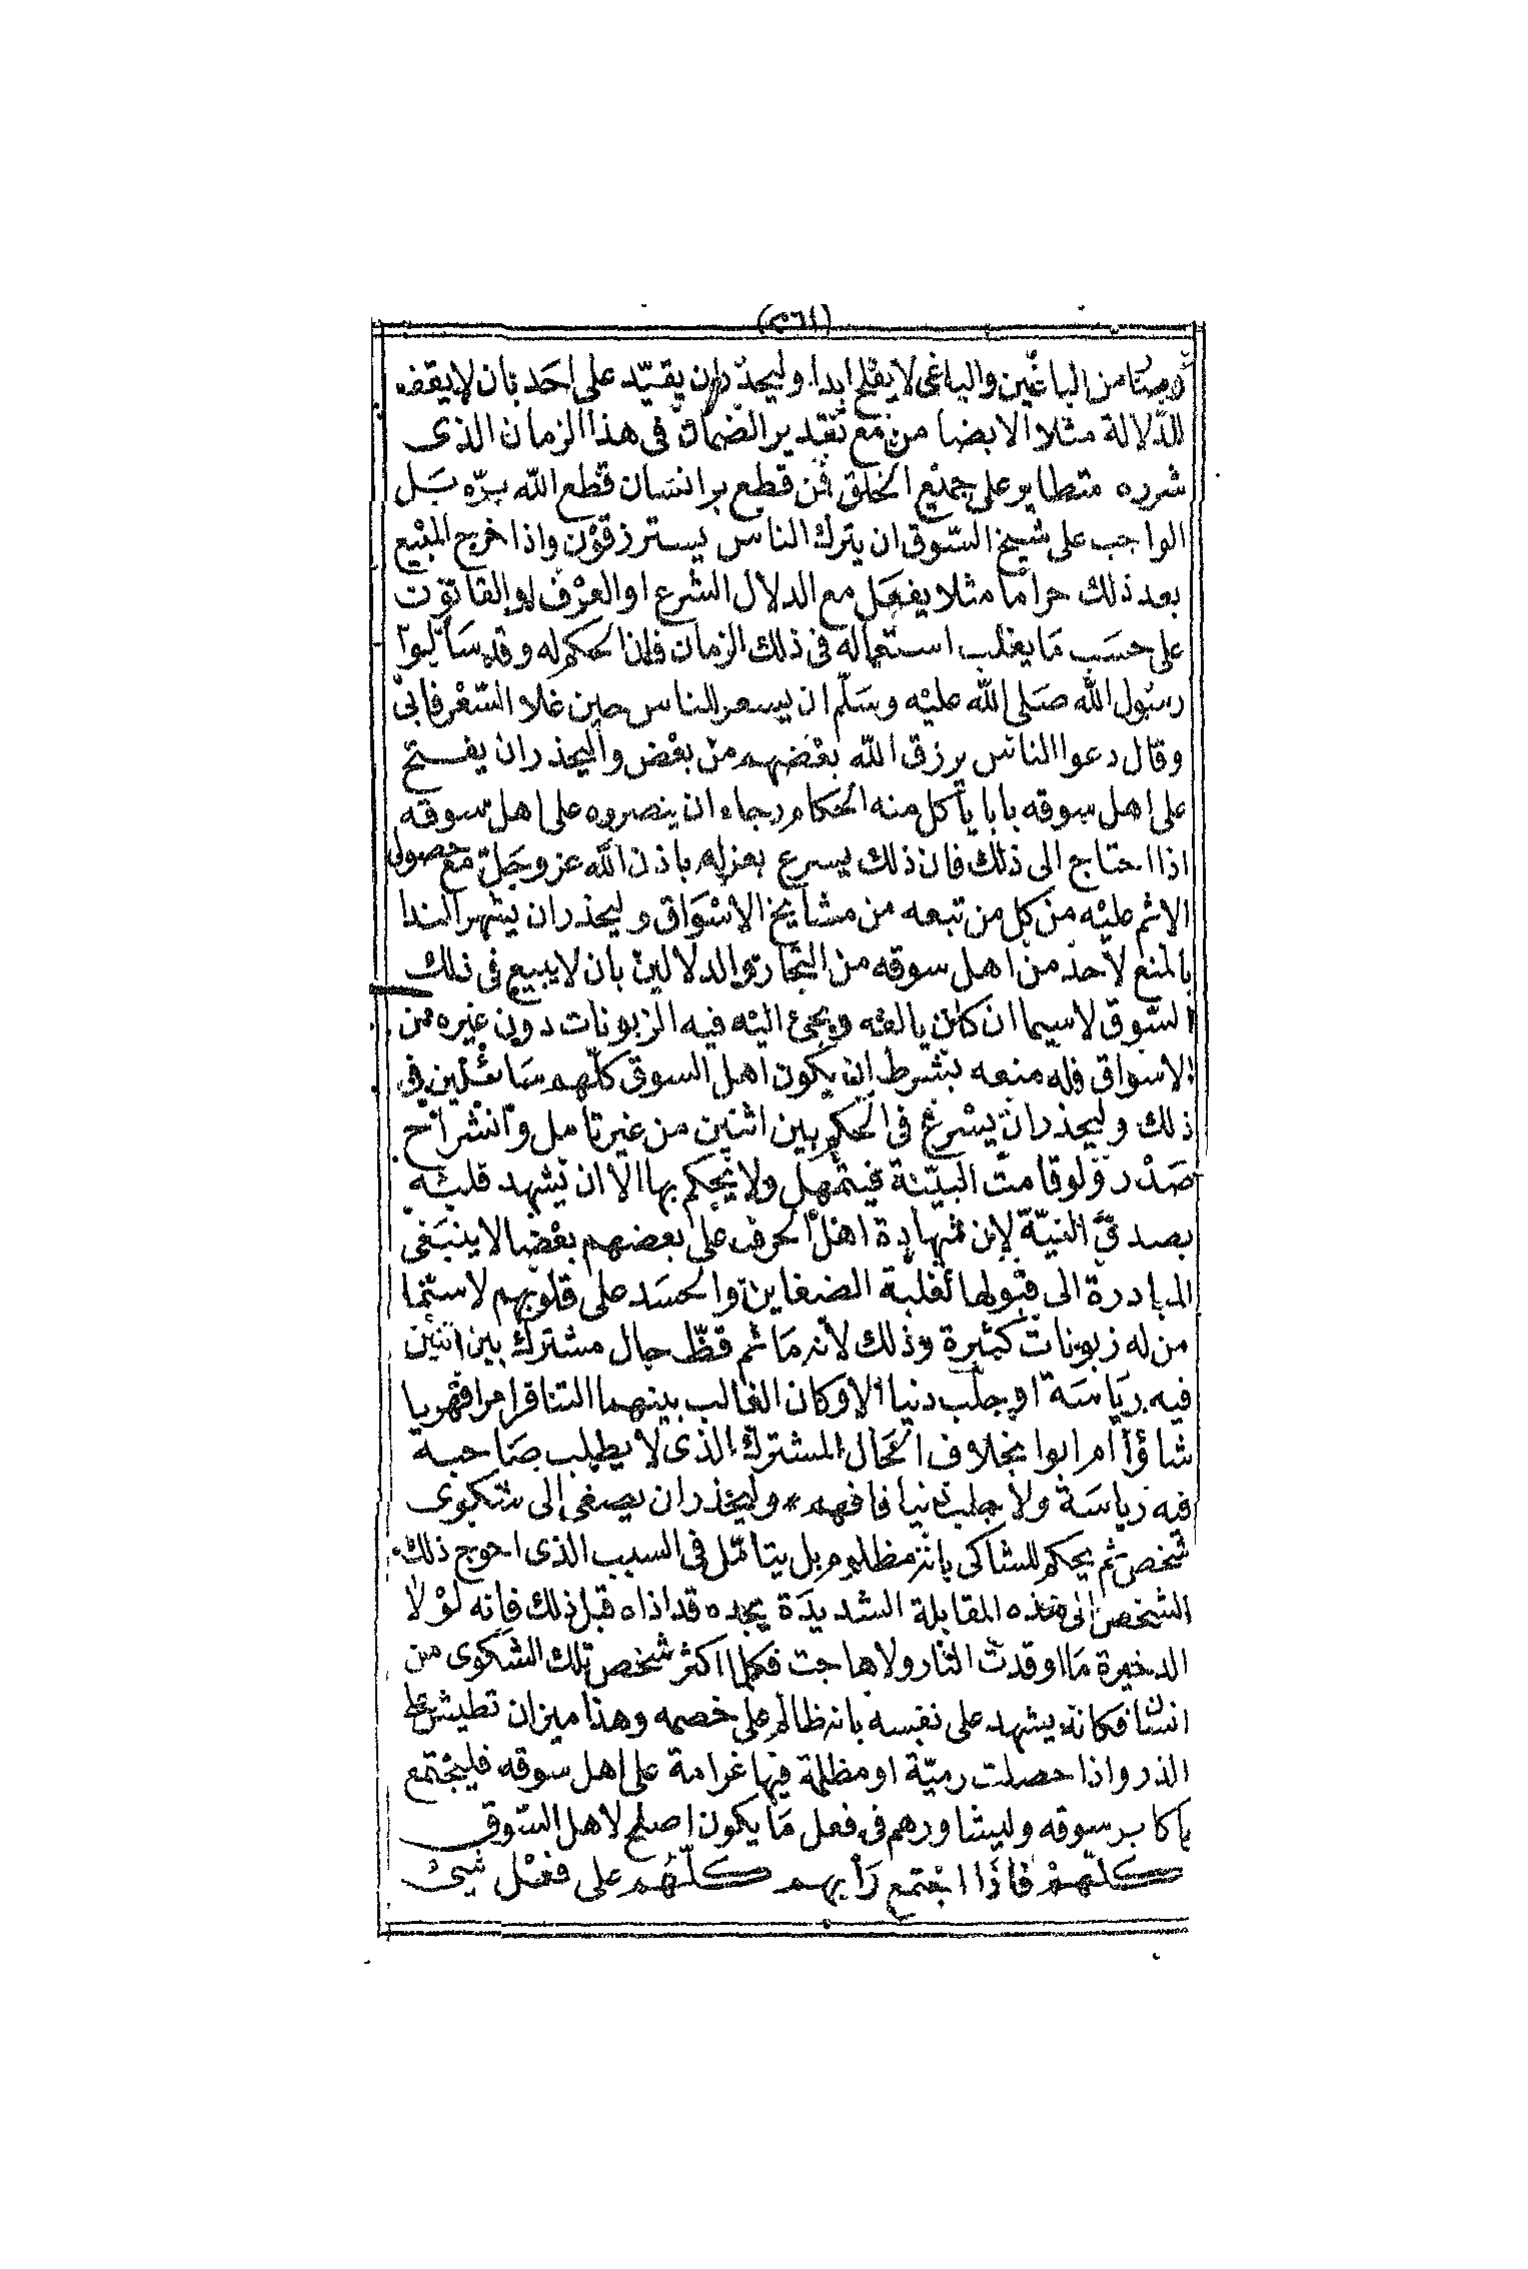 من الباغين والباغى لا يفلح ابدا وليحذر ان يقيد على احد بان لا يقف
للدلالة مثلا الا بضامن مع تقدير الضمان فى هذا الزمان الذى
شرره متطاير على جميع الخلق فمن قطع بر انسان قطع الله بره بل
الواجب على شيخ السوق ان يترك الناس يسترزقون واذا خرج المبيع
بعد ذلك حراما مثلا يفعل مع الدلال الشرع او العرف او القانون
على حسب ما يغلب استعماله فى ذلك الزمان فان الحكم له وقد سألوا
رسول الله صلى الله عليه وسلم ان يسعر للناس حين غلا السعر فابى
وقال دعوا الناس يرزق الله بعضهم من بعض وليحذر ان يفتح
على اهل سوقه بابا يأكل منه الحكام رجاء ان ينصروه على اهل سوقه
اذا احتاج الى ذلك فان ذلك يسرع بعزله باذن الله عز وجل مع حصول
الاثم عليه من كل من تبعه من مشايخ الاسواق وليحذر ان يشهر الندا
بالمنع لأحد من اهل سوقه من التجار والدلالين بان لا يبيع فى ذلك
السوق لاسيما ان كان يالفه ويجئ اليه فيه الزبونات دون غيره من
الاسواق فله منعه بشرط ان يكون اهل السوق كلهم سائلين فى
ذلك وليحذر ان يسرع فى الحكم بين اثنين من غير تامل وانشراح
صدر ولو قامت البينة فيتمهل ولا يحكم بها الا ان يشهد قلبه
بصدق النية لان شهادة اهل الحرف على بعضهم بعضا لا ينبغى
المبادرة الى قبولها لغلبة الضغاين والحسد على قلوبهم لاسيما
من له زبونات كثيرة وذلك لأنه ما ثم قط حال مشترك بين اثنين
فيه رياسة او جلب دنيا الا وكان الغالب بينهما التنافر امرا قهريا
شاؤا ام ابوا بخلاف الحال المشترك الذى لا يطلب صاحبه
فيه رياسة ولا جلب دنيا فافهم * وليحذر ان يصغى الى شكوى
شخص ثم يحكم للشاكى بانه مظلوم بل يتأمل فى السبب الذى احوج ذلك
الشخص الى هذه المقابلة الشديدة يجده قد اذاه قبل ذلك فانه لولا
الذخيرة ما اوقدت النار ولا هاجت فكلما اكثر شخص تلك الشكوى من
انسان فكانه يشهد على نفسه بانه ظالم على خصمه وهذا ميزان تطيش على
الذر واذا حصلت رمية او مظلمة فيها غرامة على اهل سوقه فليجتمع
باكابر سوقه وليشاورهم فى فعل ما يكون اصلح لاهل السوق
كلهم فاذا اجتمع رأيهم كلهم على فعل شئ